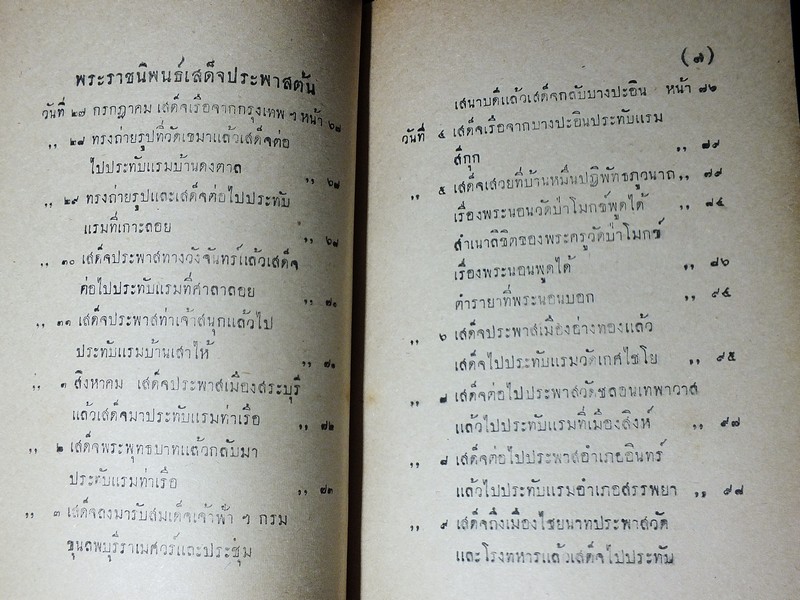 พระราชนิพนธ์เสด็จประพาสต้น
วันที่ ๒๗ กรกฎาคม เสด็จเรือจากกรุงเทพ ฯ หน้า ๖๘
,, ๒๘ ทรงถ่ายรูปที่วัดเขมาแล้วเสด็จต่อ
ไปประทับแรมบ้านดงตาล ,, ๖๘
,, ๒๙ ทรงถ่ายรูปและเสด็จต่อไปประทับ
แรมที่เกาะลอย ,, ๖๘
,, ๓๐ เสด็จประพาสทางวังจันทร์แล้วเสด็จ
ต่อไปประทับแรมที่ศาลาลอย ,, ๗๑
,, ๓๑ เสด็จประพาสท่าเจ้าสนุกแล้วไป
ประทับแรมบ้านเสาไห้ ,, ๗๑
,, ๑ สิงหาคม เสด็จประพาสเมืองสระบุรี
แล้วเสด็จมาประทับแรมท่าเรือ ,, ๘๒
,, ๒ เสด็จพระพุทธบาทแล้วกลับมา
ประทับแรมท่าเรือ ,, ๘๓
,, ๓ เสด็จลงมารับสมเด็จเจ้าฟ้า ฯ กรม
ขุนลพบุรีราเมศวร์และประชุม
(๗)
เสนาบดีแล้วเสด็จกลับบางปะอิน หน้า ๘๖
วันที่ ๔ เสด็จเรือจากบางปะอินประทับแรม
สีกุก ,, ๘๙
,, ๕ เสด็จเสวยที่บ้านหมื่นปฏิพัทธภูวนาถ ,, ๘๙
เรื่องพระนอนวัดป่าโมกข์พูดได้ ,, ๘๔
สำเนาลิขิตของพระครูวัดป่าโมกข์
เรื่องพระนอนพูดได้ ,, ๘๖
ตำรายาที่พระนอนบอก ,, ๙๔
,, ๖ เสด็จประพาสเมืองอ่างทองแล้ว
เสด็จไปประทับแรมวัดเกศไชโย ,, ๙๕
,, ๗ เสด็จต่อไปประพาสวัดชลอนเทพาวาส
แล้วไปประทับแรมที่เมืองสิงห์ ,, ๙๗
,, ๘ เสด็จต่อไปประพาสอำเภออินทร์
แล้วไปประทับแรมอำเภอสรรพยา ,, ๙๘
,, ๙ เสด็จถึงเมืองไชยนาทประพาสวัด
และโรงทหารแล้วเสด็จไปประทับ